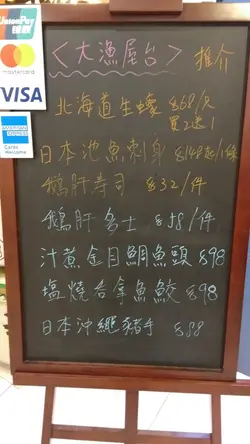 UnionPay
银联
mastercard
VISA
AMERICAN EXPRESS
Cards Welcome
<大漁屋台> 推介
北海道生蠔 $68/只
買2送1
日本池魚刺身 $148起/1條
鵝肝寿司 $32/件
鵝肝多士 $58/件
汁煮金目鯛魚頭 $98
塩燒吞拿魚鮫 $98
日本沖繩豬手 $88